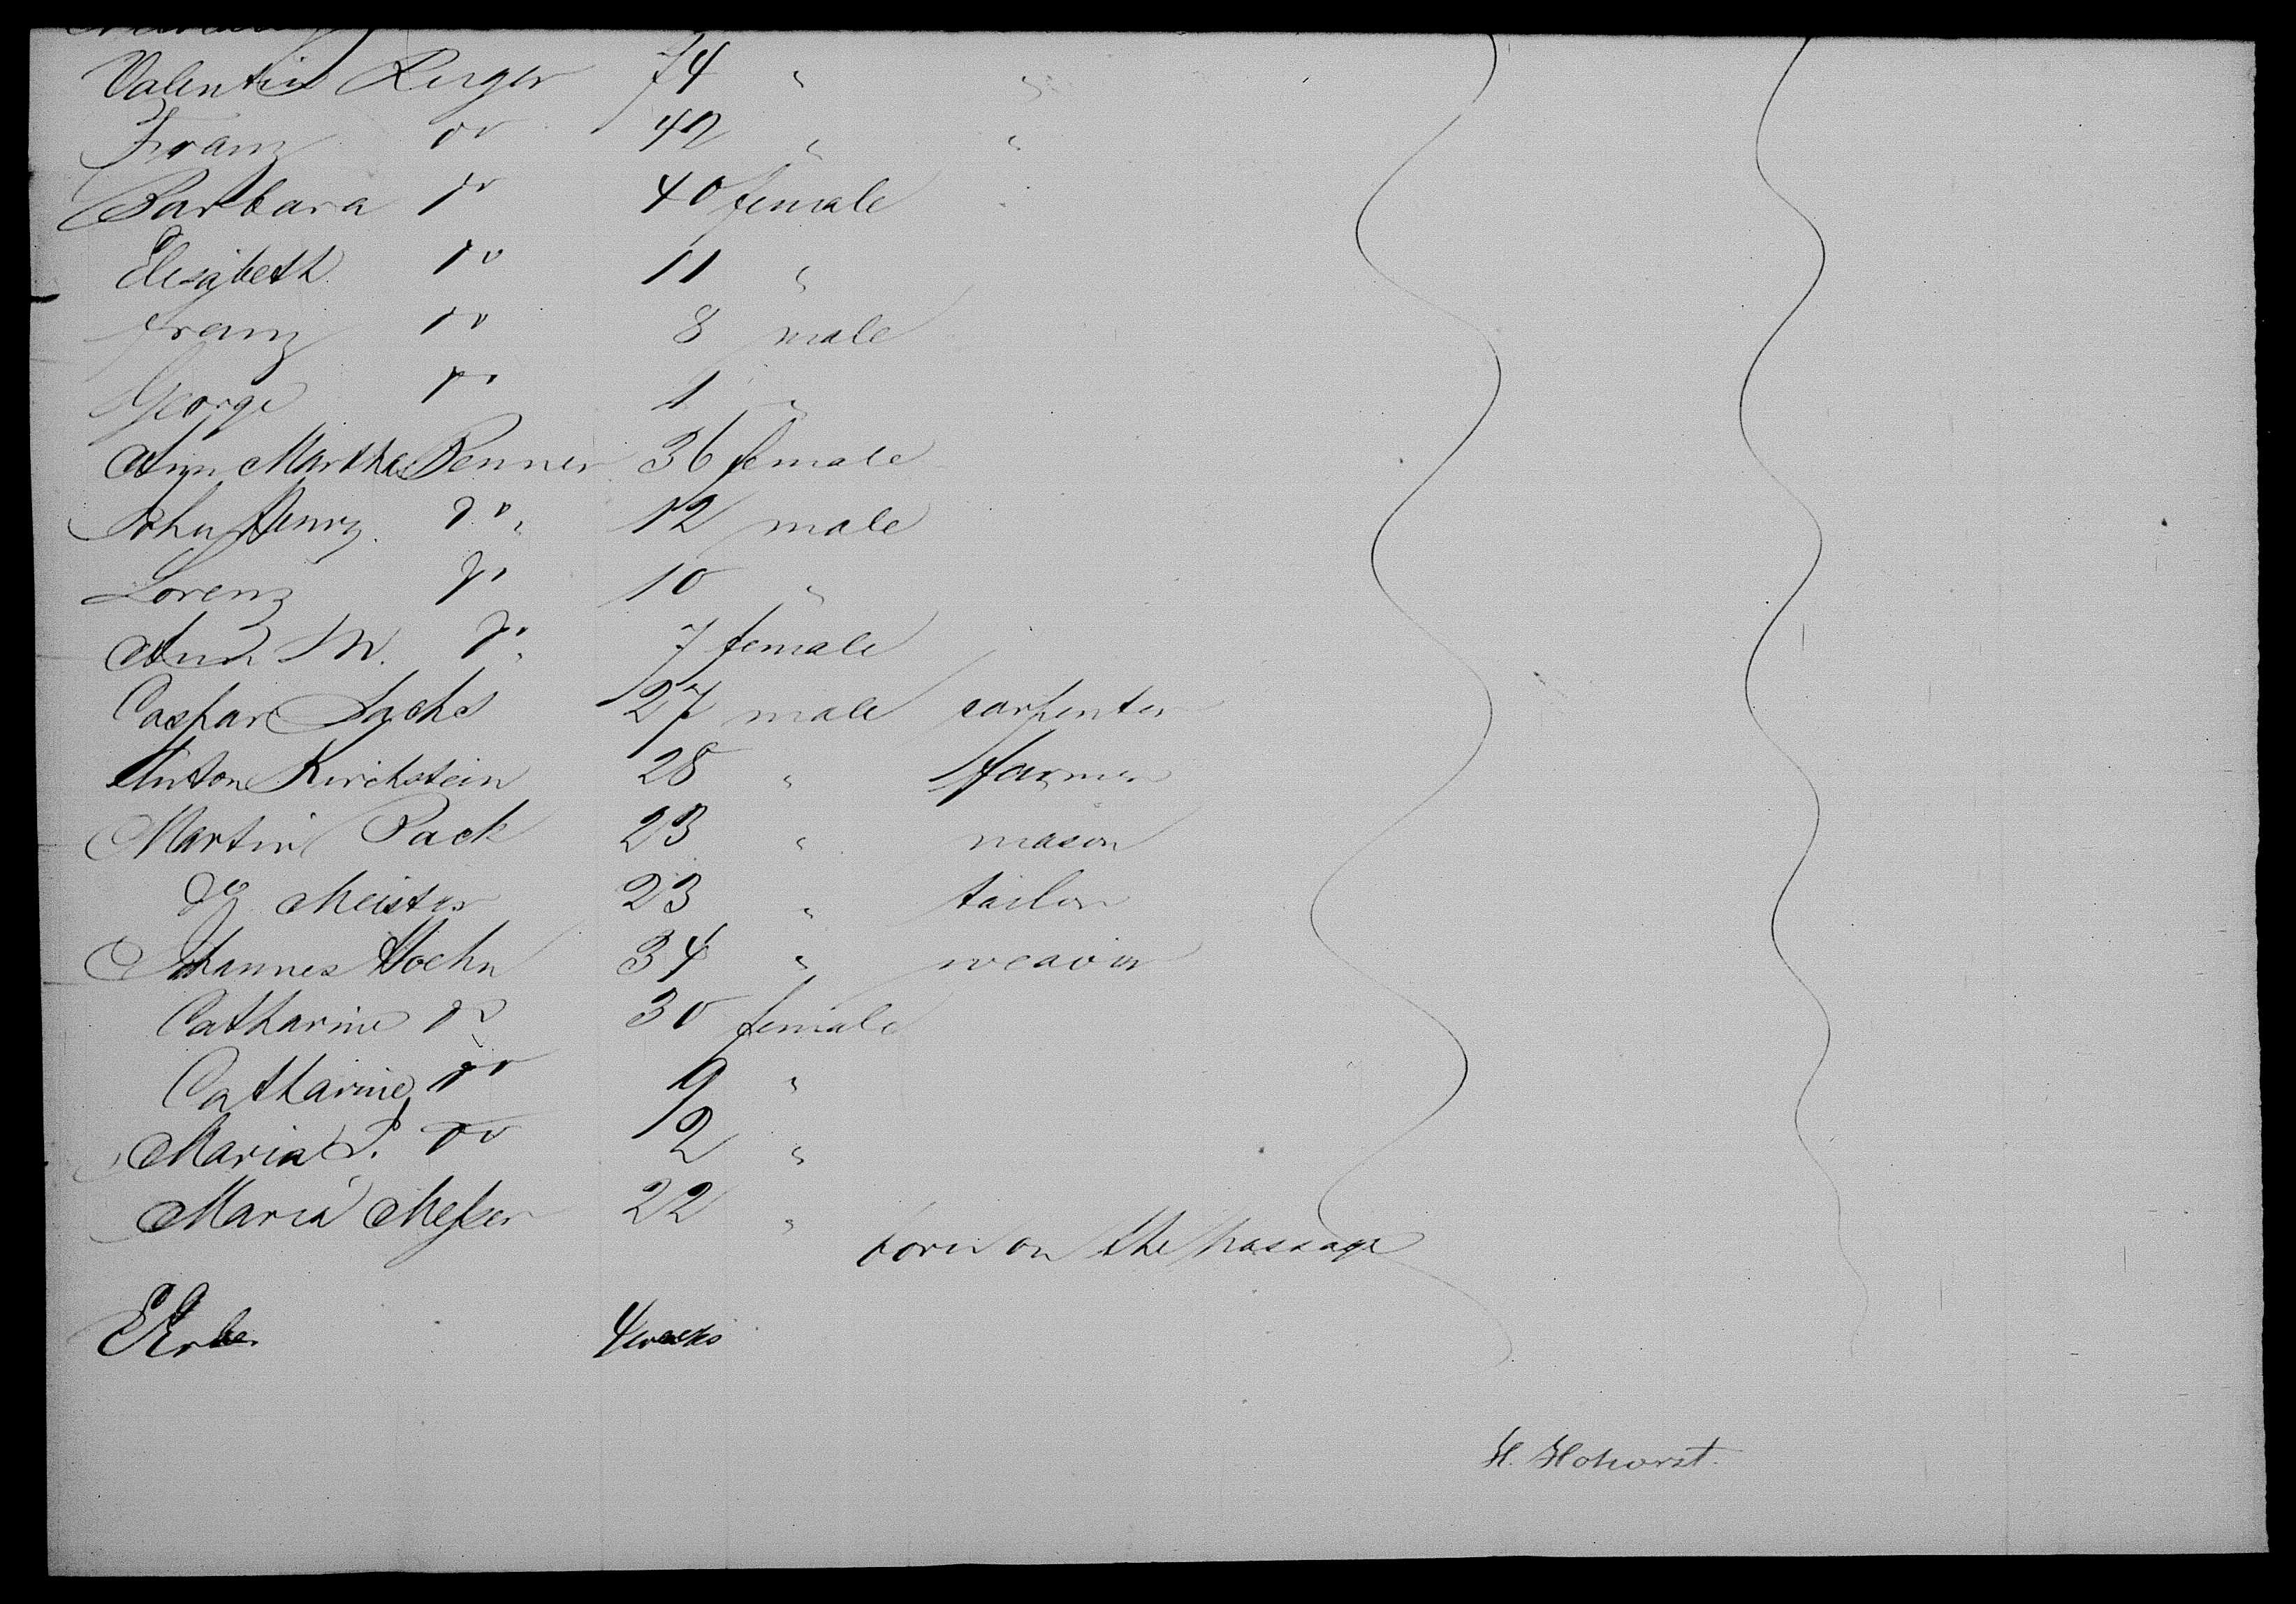 Valentin Ruger 74 " "
Franz do 42 " "
Barbara do 40 female
Elisabeth do 11 "
Franz do 8 male
George do 1 "
Ann Martha Benner 36 female
John Henry do 12 male
Lorenz do 10 "
Ann M. do 7 female
Caspar Sachs 27 male carpenter
Anton Kirchstein 28 " farmer
Martin Pack 23 " mason
Meister 23 " tailor
Johannes Hoehn 34 " weaver
Catharine do 30 female
Catharine do 9 "
Maria do 2 "
Maria Meßer 22 "
born on the passage
4 weeks
H. Hohorst.